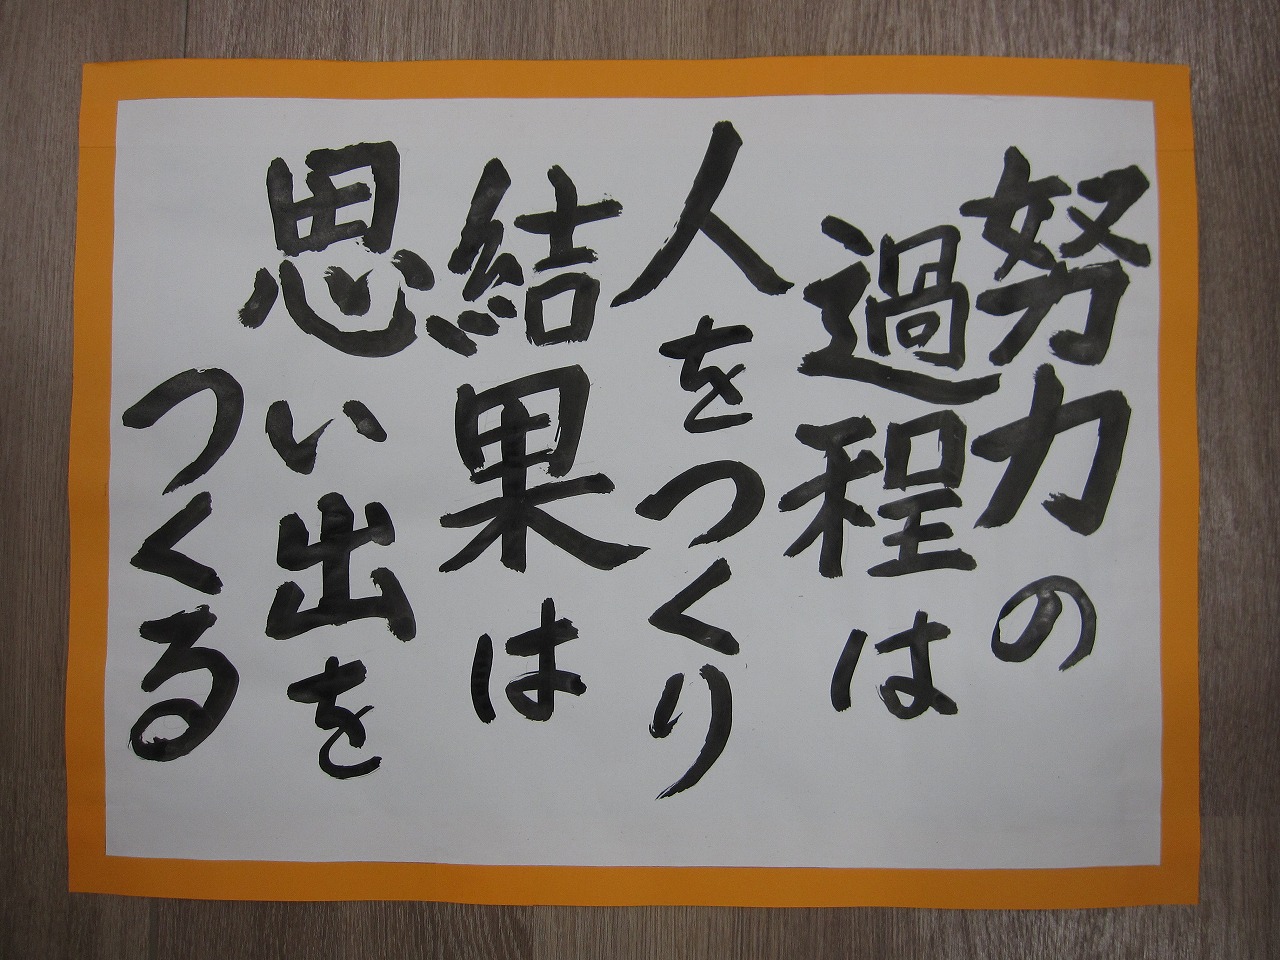 努力の
過程は
人をつくり
結果は
思い出を
つくる